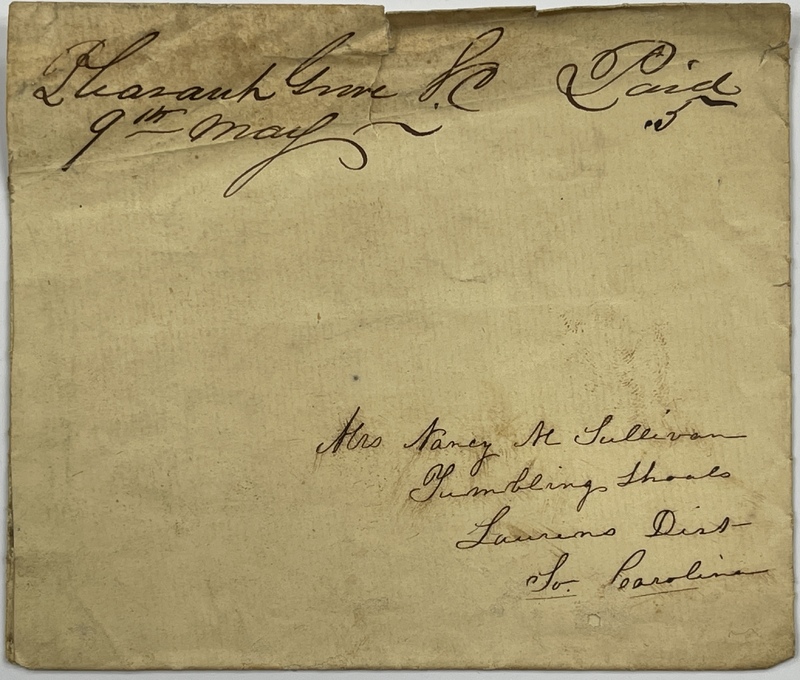 Pleasant Grove S.C Paid
9th May 5
Mrs Nancy M Sullivan
Tumbling Shoals
Laurens Dist
So. Carolina